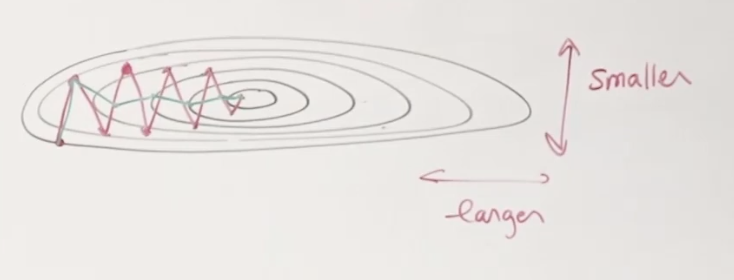 smaller
larger